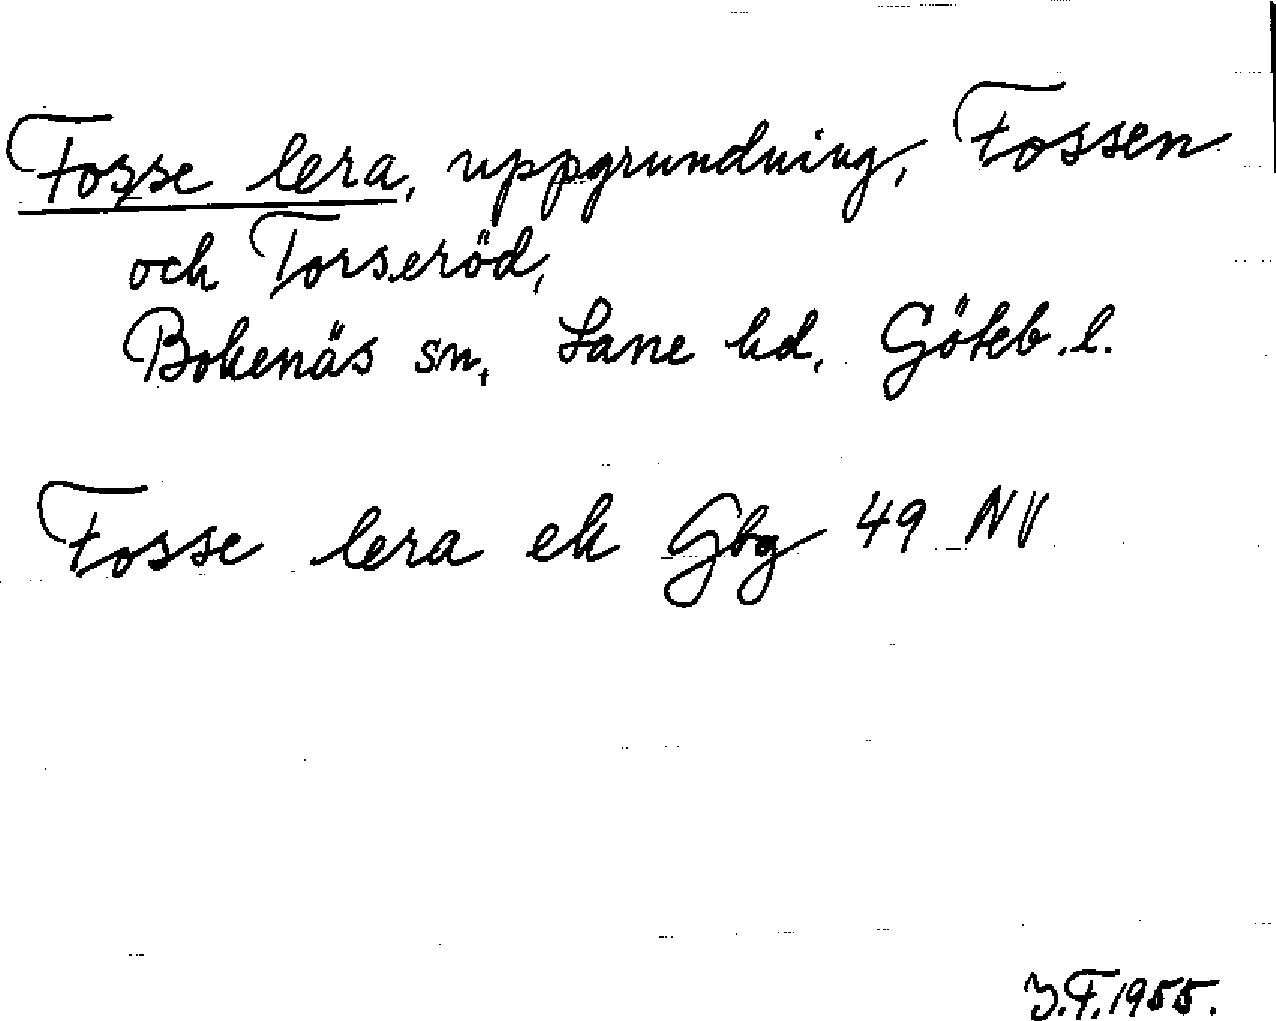 Fosse lera, uppgrundning, Fossen
och Torseröd,
Bokenäs sn, Lane hd, Göteb. l.
Fosse lera ek Gbg 49 NV
Y.F. 1955.